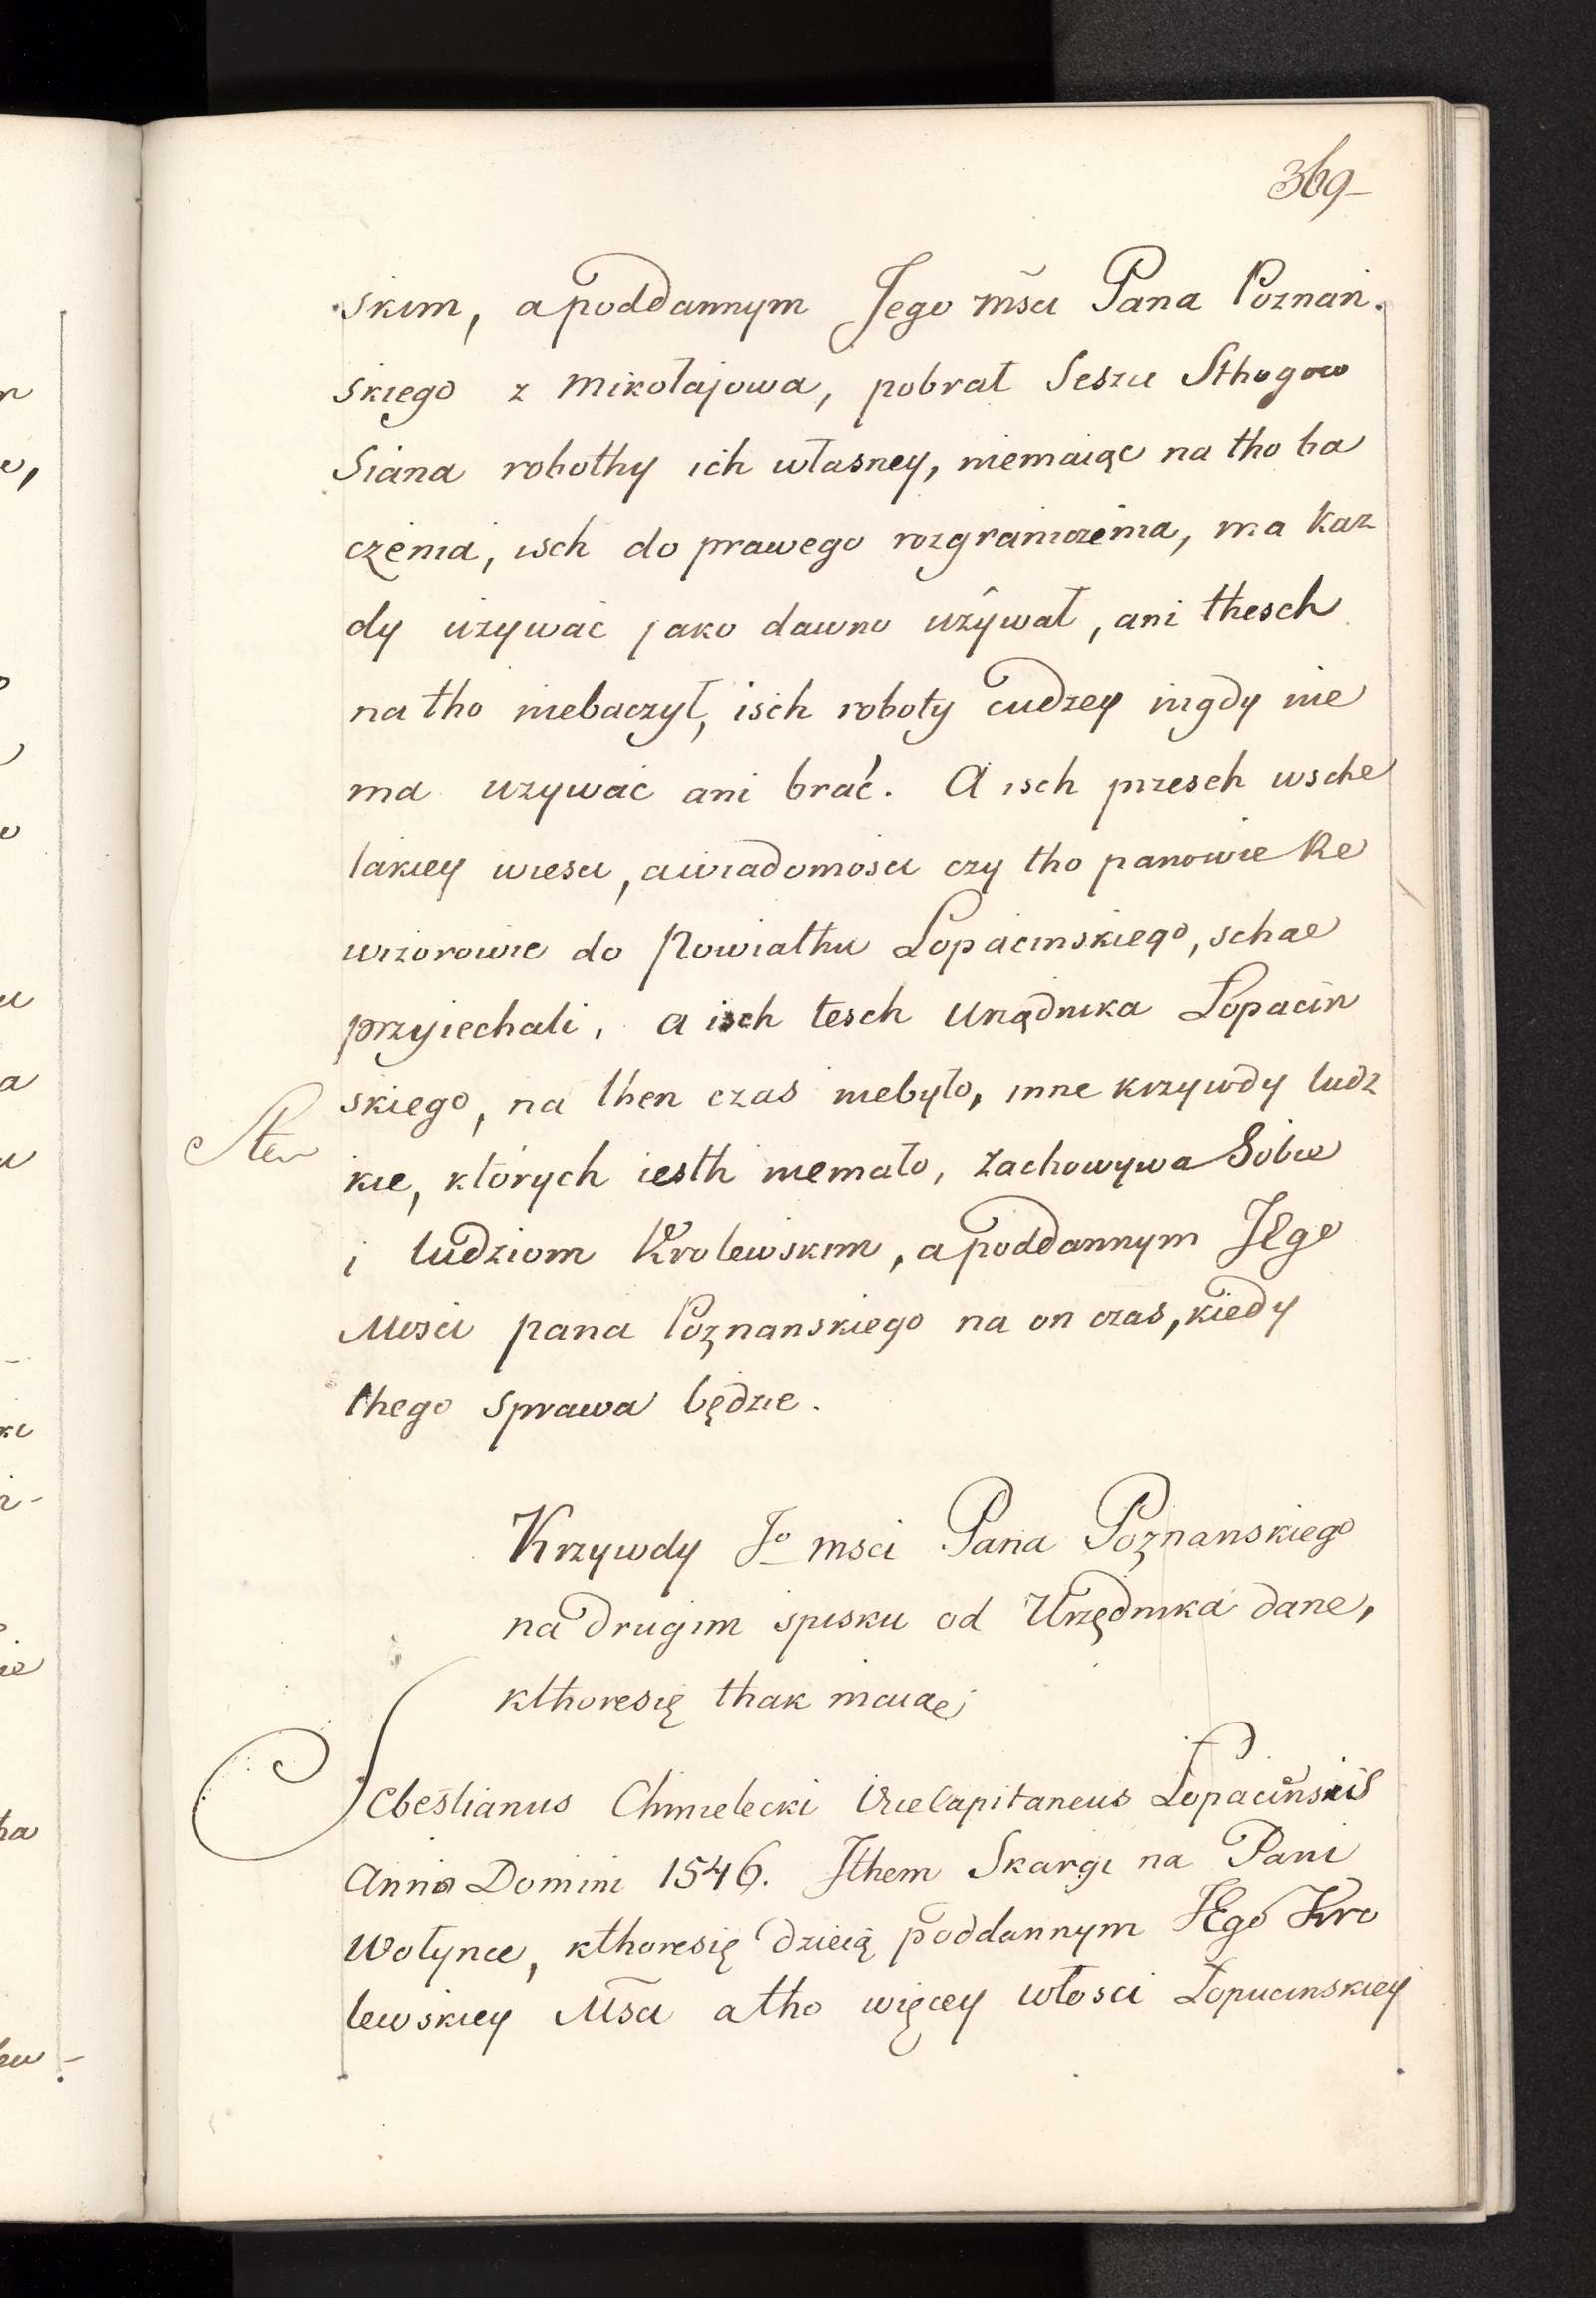 369
skim, a poddannym Jego mści Pana Poznań.
skiego z Mikołajowa, pobrał Seszu Sthogow
Siana robothy ich własney, niemaiąc na tho ba
czenia, isch do prawego rozgraniczenia, ma kaz
dy używać jako dawno używał, ani thesch
na tho niebaczył, isch roboty cudzey nigdy nie
ma uzywać ani brać. A isch przesch wsche
lakiey wiesci, a wiadomości czy tho panowie Re
wizorowie do Powiathu Łopacinskiego, schae
przyiechali. a isch tesch Urzędnika Łopacin
skiego, na then czas niebyło, inne krzywdy ludz
kie, których iesth niemało, zachowywa Sobie
i ludziom Krolewskim, a poddannym JEgo
Mości pana Poznanskiego na on czas, kiedy
thego sprawa będzie.
Krzywdy Jo msci Pana Poznanskiego
na drugim spisku od Urzędnika dane,
kthoresię thak maiąe;
Sebestianus Chmielecki ViceCapitaneus Łopacinskis
Anno Domini 1546. Jthem Skargi na Pani
Wołynce, kthoresię dzieią poddannym JEgo Kro
lewskiey Mści a tho więcey włosci Łopucinskiey